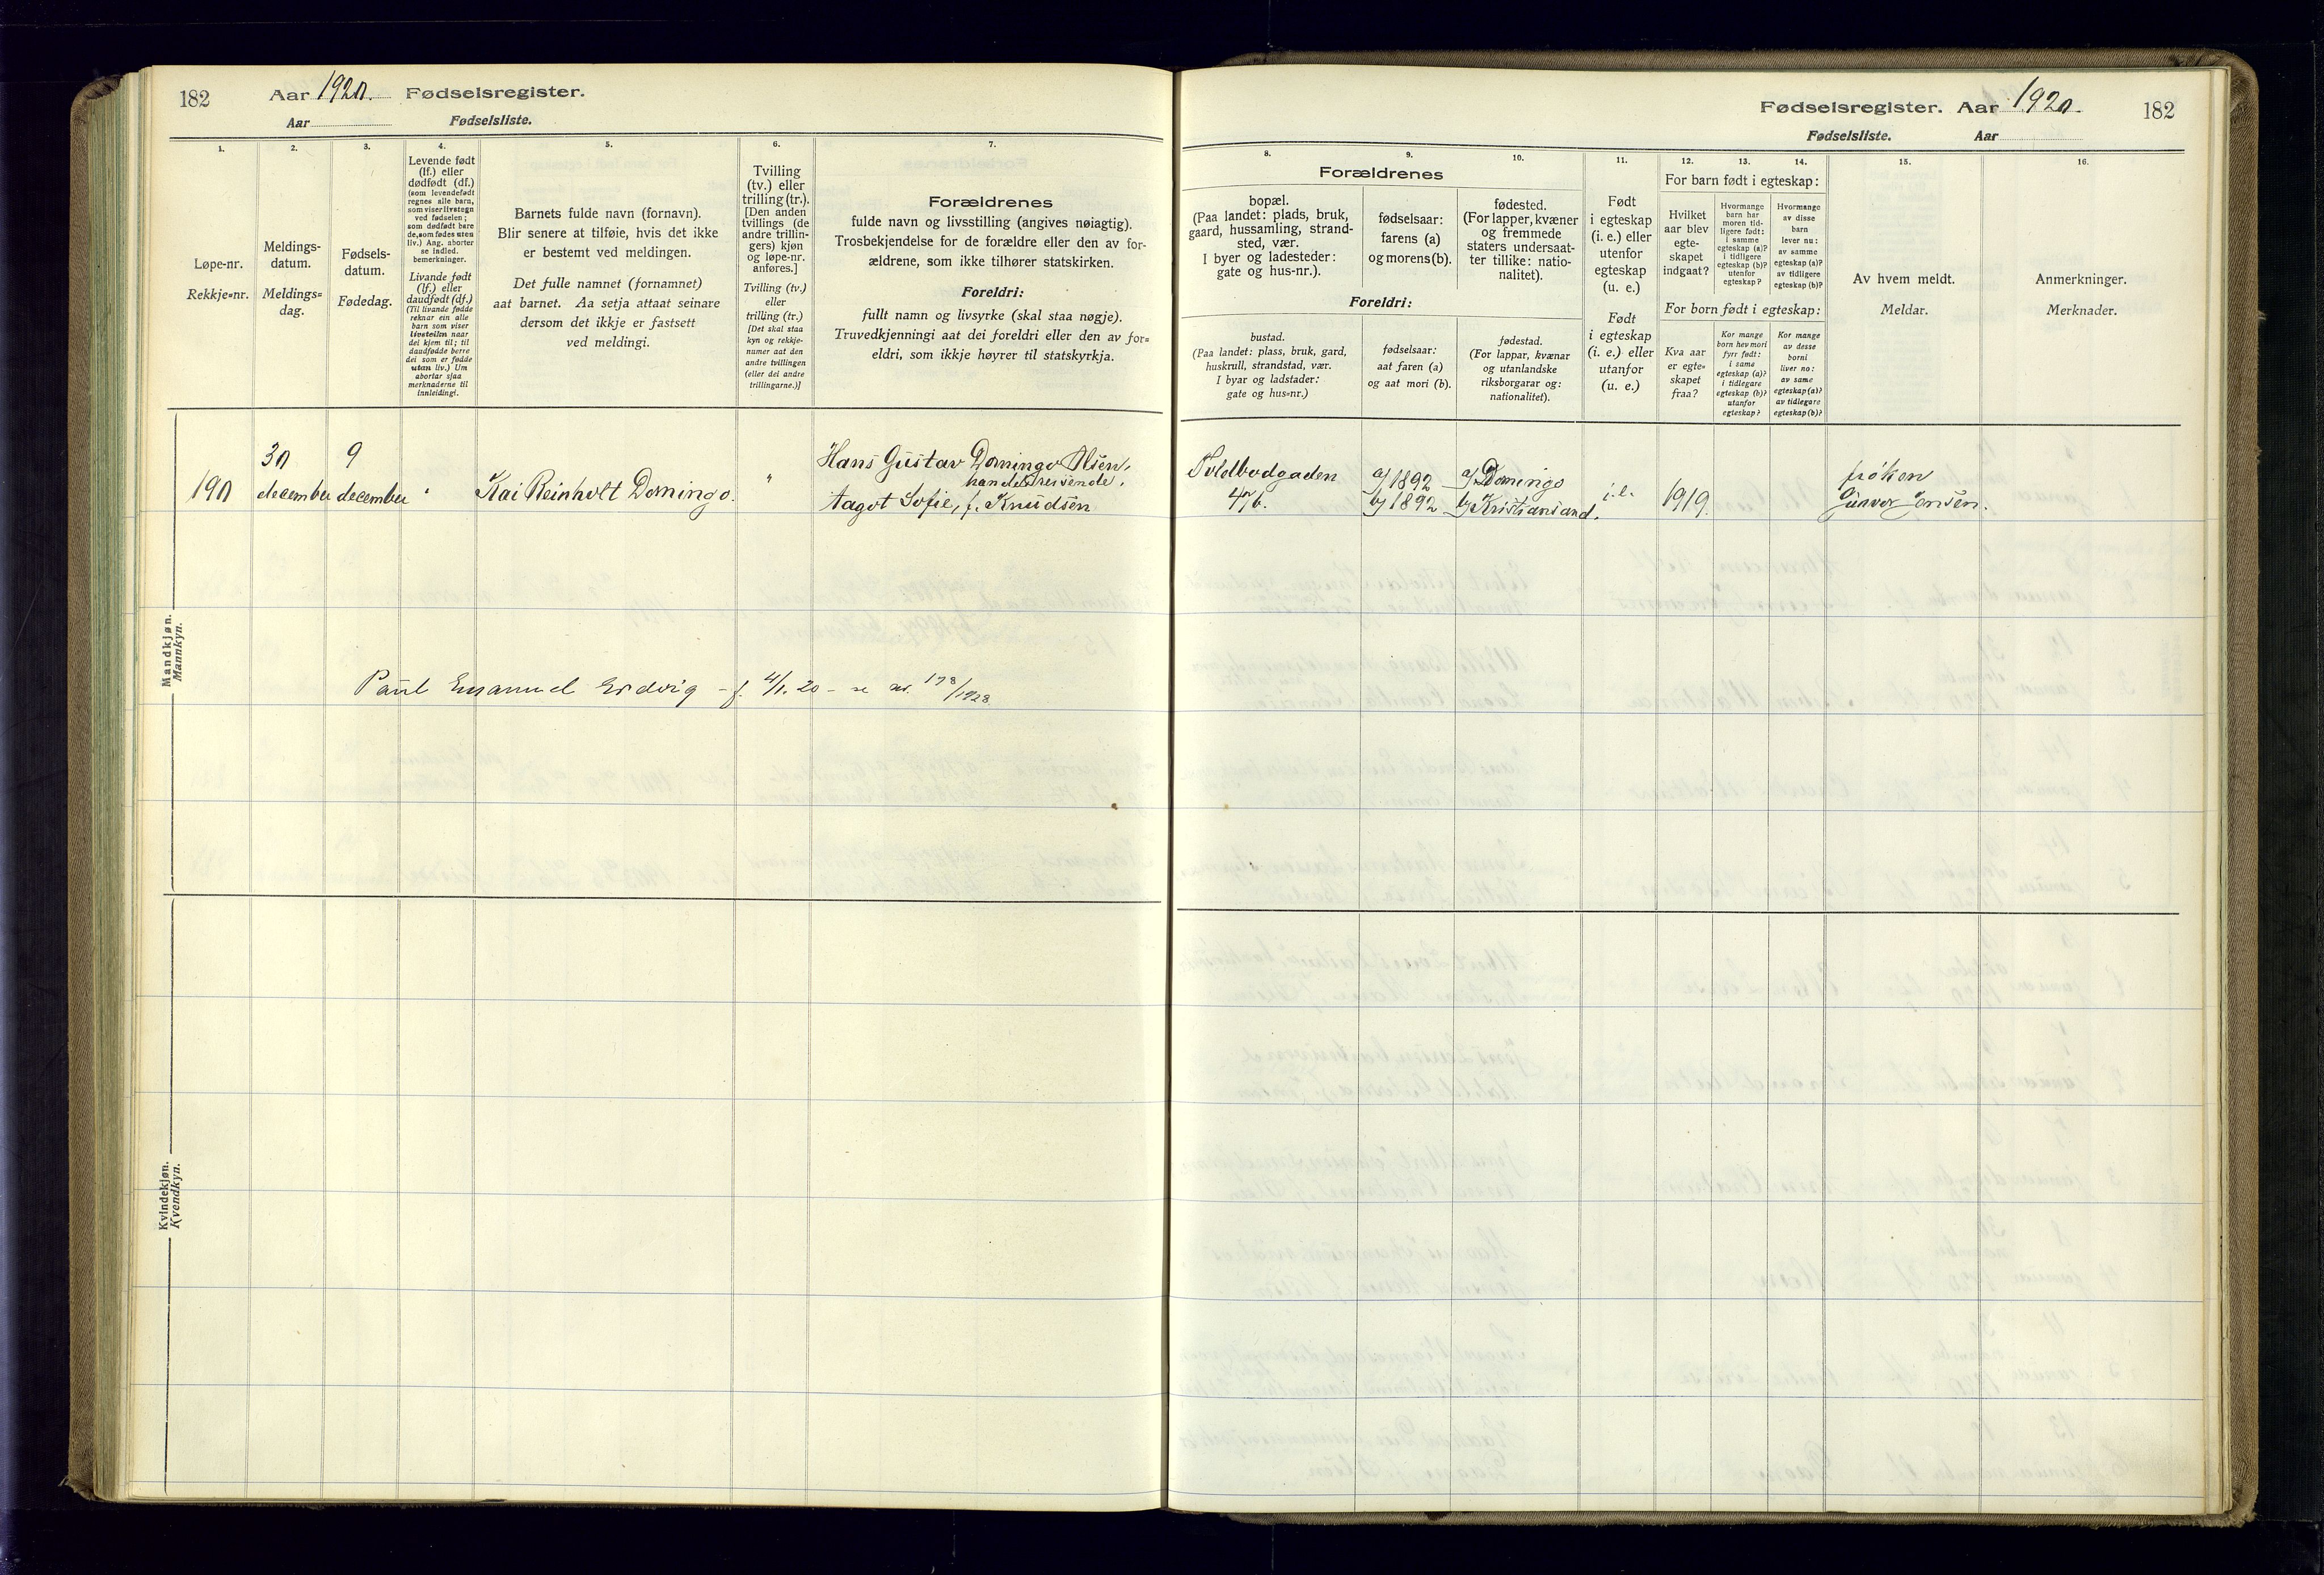 182
Aar 1920. Fødselsregister.
Aar Fødselsliste.
1.
2.
3.
4.
5.
6.
7.
Løpe-nr.
Rekkje=nr.
Meldings-
datum.
Meldings=
dag.
Fødsels-
datum.
Fødedag.
Levende født
(lf.) eller
dødfødt (df.)
(som levendefødt
regnes alle barn,
som viser livstegn
ved fødselen;
som dødfødt bare
de, som fødes uten
liv.) Ang. aborter
se indled.
bemerkninger.
Livande født
(lf.) eller
daudfødt (df.)
(Til livande fødde
reknar ein alle
barn som viser
livsteiken naar
dei kjem til; til
daudfødde berre
dei som er fødde
utan liv.) Um
abortar sjaa
merknaderne til
innleidingi.
Barnets fulde navn (fornavn).
Blir senere at tilføie, hvis det ikke
er bestemt ved meldingen.
Det fulle namnet (fornamnet)
aat barnet. Aa setja attaat seinare
dersom det ikkje er fastsett
ved meldingi.
Tvilling
(tv.) eller
trilling (tr.).
[Den anden
tvillings (de
andre trillin-
gers) kjøn
og løpe-nr.
anføres.]
Tvilling (tv.)
eller
trilling (tr.)
[Det skal staa
kyn og rekkje-
numer aat den
andre tvillingen
(eller dei andre
trillingarne.)]
Forældrenes
fulde navn og livsstilling (angives nøiagtig).
Trosbekjendelse for de forældre eller den av for-
ældrene, som ikke tilhører statskirken.
Foreldri:
fullt namn og livsyrke (skal staa nøgje).
Truvedkjenningi aat dei foreldri eller den av for=
eldri, som ikkje høyrer til statskyrkja.
Mandkjøn.
Mannkyn.
190
30
december
9
december
"
Kai Reinholt Domingo.
"
Hans Gustav Domingo Olsen,
handelsreisende,
Aagot Sofie, f. Knudsen
Paul Emanuel - f. 4/1. 20 - se 178/1928.
Kvindekjøn.
Kvendkyn.
Fødselsregister. Aar 1920.
182
Fødselsliste. Aar
8.
9.
10.
11.
12.
13.
14.
15.
16.
Forældrenes
bopæl.
(Paa landet: plads, bruk,
gaard, hussamling, strand-
sted, vær.
I byer og ladesteder:
gate og hus-nr.).
fødselsaar:
farens (a)
og morens (b).
fødested.
(For lapper, kvæner
og fremmede
staters undersaat-
ter tillike: natio-
nalitet).
Foreldri:
bustad.
(Paa landet: plass, bruk, gard,
huskrull, strandstad, vær.
I byar og ladstader:
gate og hus=nr.)
fødselsaar:
aat faren (a)
og aat mori (b).
fødestad.
(For lappar, kvænar
og utanlandske
riksborgarar og:
nationalitet).
Født
i egteskap
(i. e.) eller
utenfor
egteskap
(u. e.)
Født
i egteskap
(i. e.) eller
utanfor
(u. e.)
For barn født i egteskap:
Hvilket
aar blev
egte-
skapet
indgaat?
Hvormange
barn har
moren tid-
ligere født:
i samme
egteskap (a)?
i tidligere
egteskap (b)?
utenfor
egteskap?
Hvormange
av disse
barn
lever nu:
av samme
egteskap (a)?
av tidligere
egteskap (b)?
For born født i egteskap:
Kva aar
er egte=
skapet
fraa?
Kor mange
born hev mori
fyrr født:
i same
egteskap (a)?
i tidlegare
egteskap (b)?
utanfor
egteskap?
Kor mange
av desse
borni
liver no:
av same
egteskap (a)?
av tidlegare
egteskap (b)?
Av hvem meldt.
Meldar.
Anmerkninger.
Merknader.
Toldbodgaden
47b.
a) 1892
b) 1892
a) Domingo
b) Kristiansand.
i. e.
1919.
frøken
Gunvor Jensen.